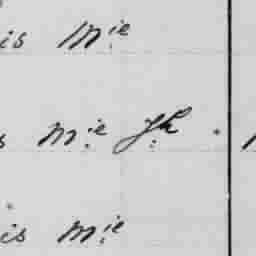 is M.ie
s M.ie Jh.
is M.ie